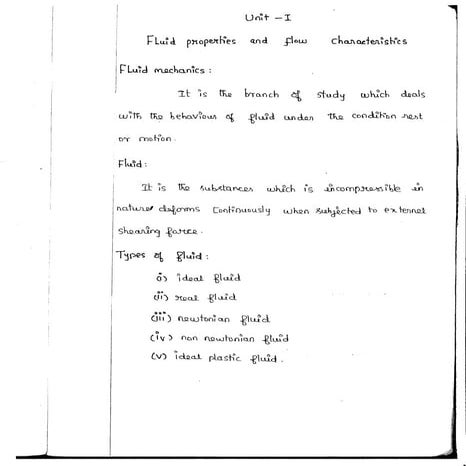 Unit - I
Fluid properties and flow characteristics
Fluid mechanics :
It is the branch of study which deals
with the behaviour of fluid under the condition rest
or motion.
Fluid :
It is the substances which is incompressible in
nature deforms continuously when subjected to external
shearing force.
Types of fluid :
i) ideal fluid
(ii) real fluid
(iii) newtonian fluid
(iv) non newtonian fluid
(v) ideal plastic fluid.